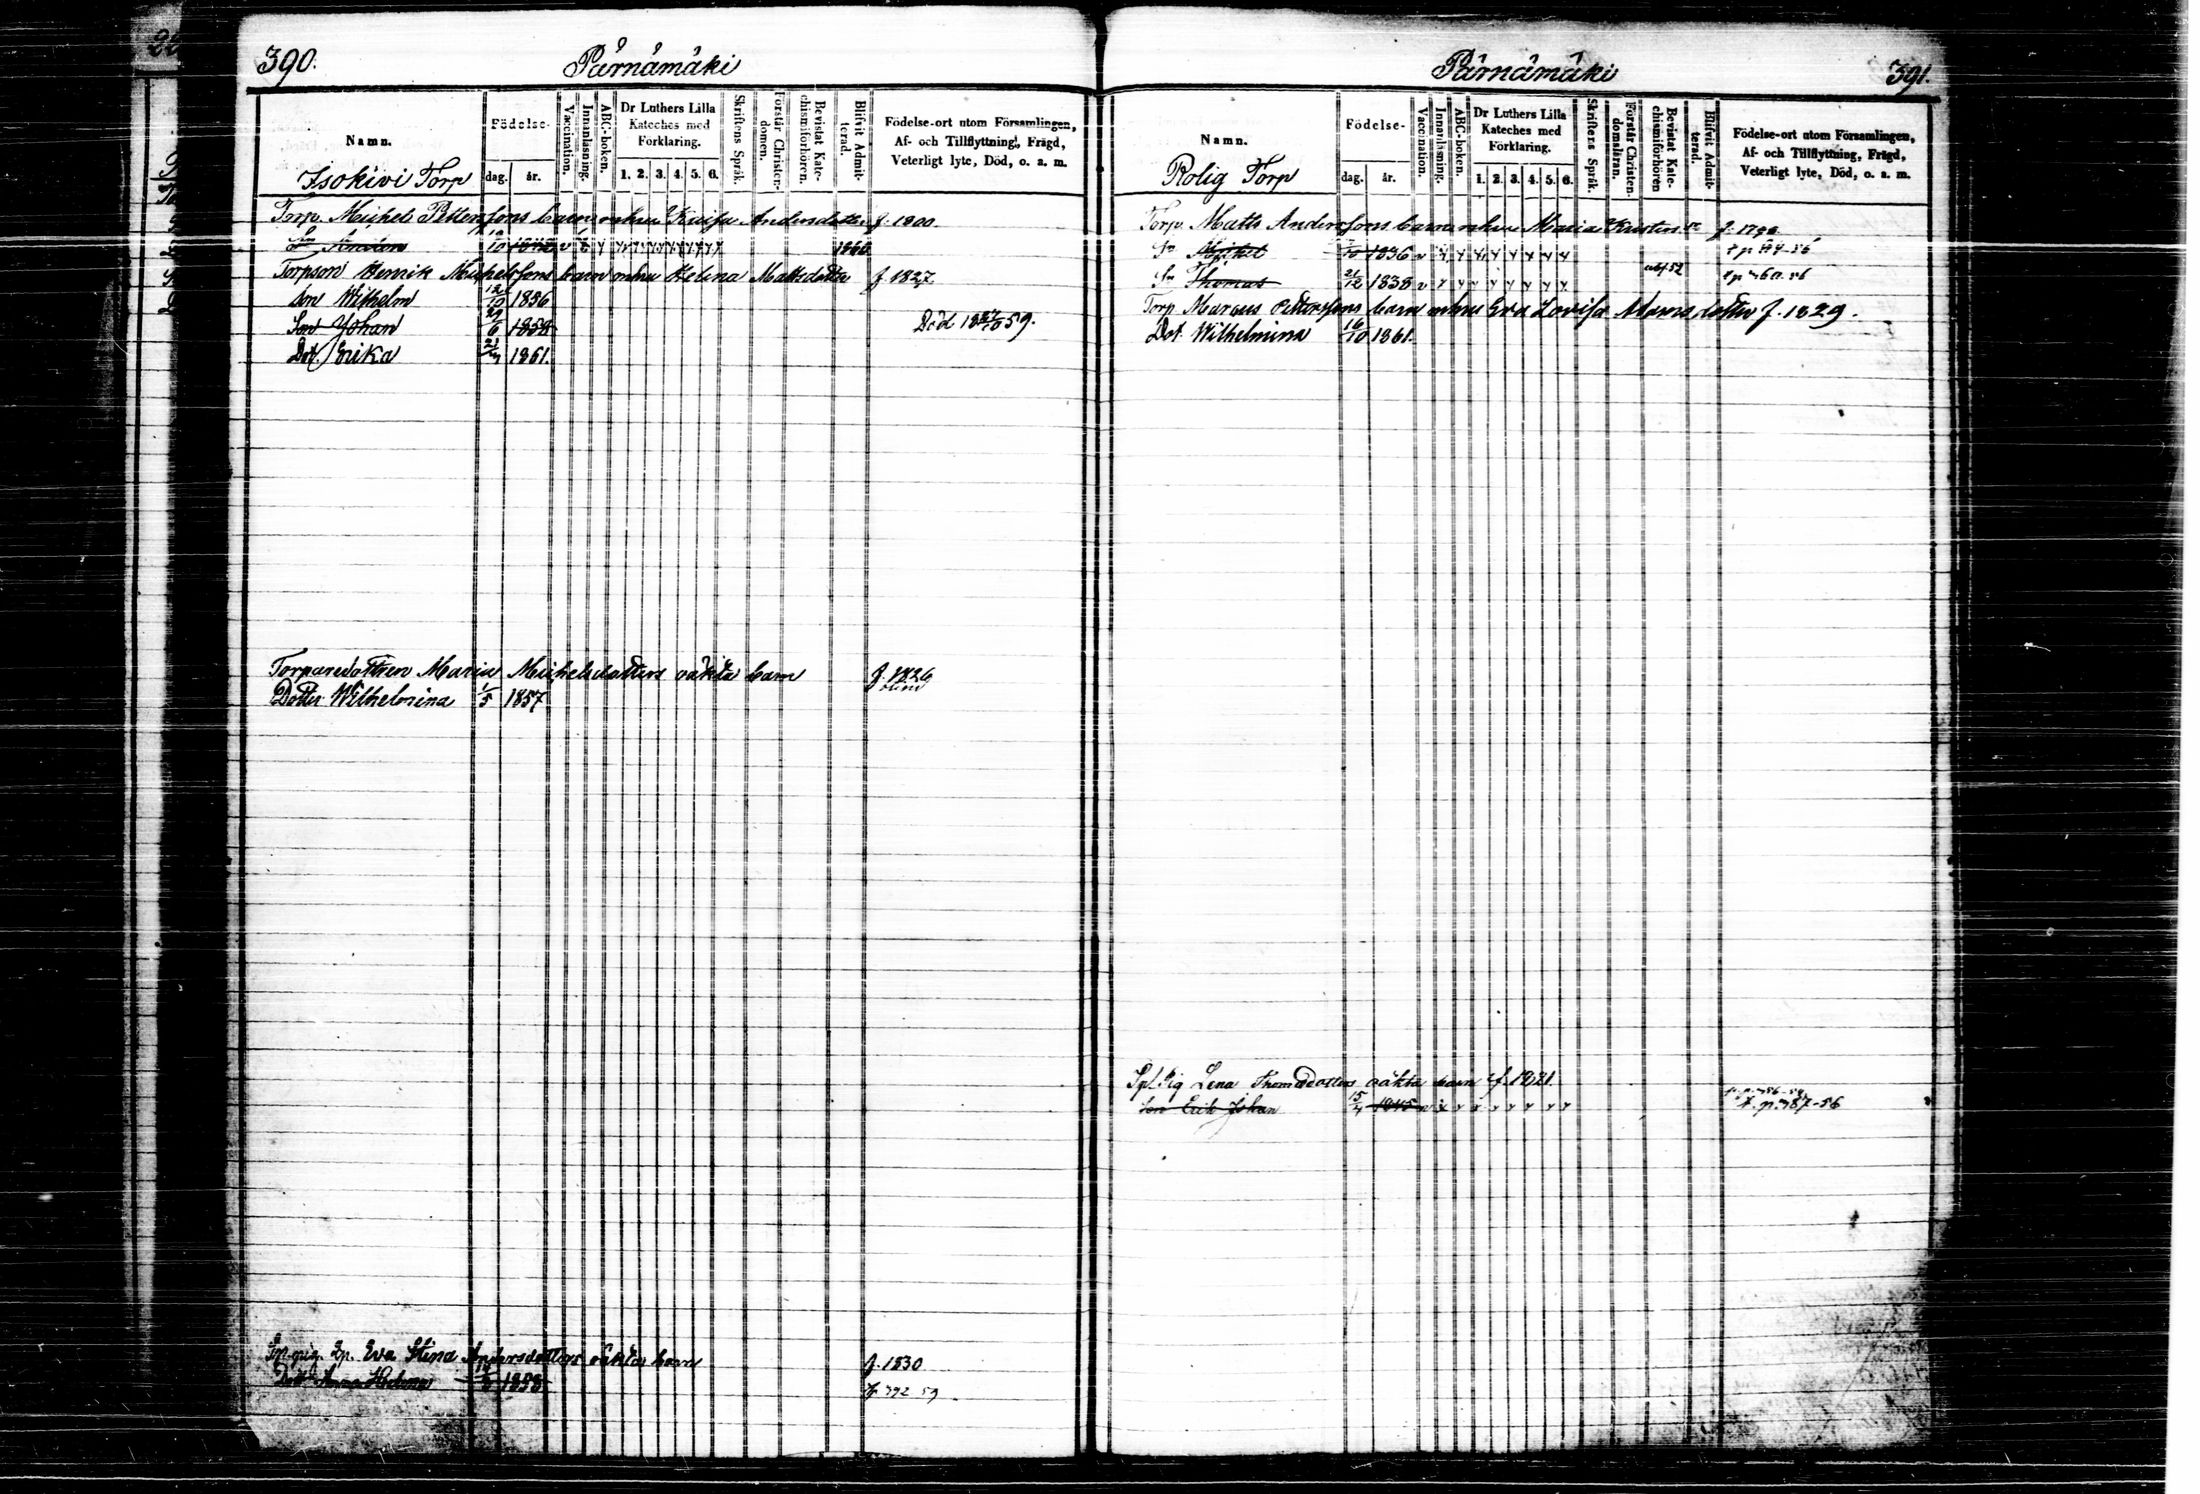 390.
Pärnämäki
Namn.
Födelse-
dag.
år.
Vaccination.
Innanläsning.
ABC-boken.
Dr Luthers Lilla
Kateches med
Förklaring.
1. 2. 3. 4. 5. 6.
Skriftens Språk.
Förstår Christen-
domen.
Bevistat Kate-
chismiförhören.
Blifvit Admit-
terad.
Födelse-ort utom Församlingen,
Af- och Tillflyttning, Frägd,
Veterligt lyte, Död, o. a. m.
Isokivi Torp
Torp. Michel Pettersfons barn m hu Kaisa Andersdotter f. 1800
10 1842 v y y y y y y y y 1860
Torpson Henrik Michelsfons barn m hu Helena Mattsdotter f. 1827
Son Wilhelm 12/10 1856
Son Johan 29/6 1858 Död 59.
Dot. Erika 1861.
Torparedottren Maria Michelsdotters oäkta barn f. 1826
Dotter Wilhelmina 1/5 1857
Eva Stina Andersdotters oäkta barn f. 1830
Dott Anna Helena 1858 392 59
Pärnämäki
391.
Namn.
Födelse-
dag.
år.
Vaccination.
Innanläsning.
ABC-boken.
Dr Luthers Lilla
Kateches med
Förklaring.
1. 2. 3. 4. 5. 6.
Skriftens Språk.
Förstår Christen-
domsläran.
Bevistat Kate-
chismiförhören
Blifvit Admit-
terad.
Födelse-ort utom Församlingen,
Af- och Tillflyttning, Frägd,
Veterligt lyte, Död, o. a. m.
Rolig Torp
Torp. Matts Andersfons barn m hu Maria Kristins
Sn Michel 1836 v y y y y y y y y
Sn Thomas 21/12 1838 v y y y y y y y y
Torp Marcus Pettersfons barn m hu Eva Lovisa Mattsdotter f. 1829.
Dot. Wilhelmina 16/10 1861.
Pig Lena Thomasdotters oäkta barn f. 1821.
Son Erik Johan 1845 v y y y y y y y y